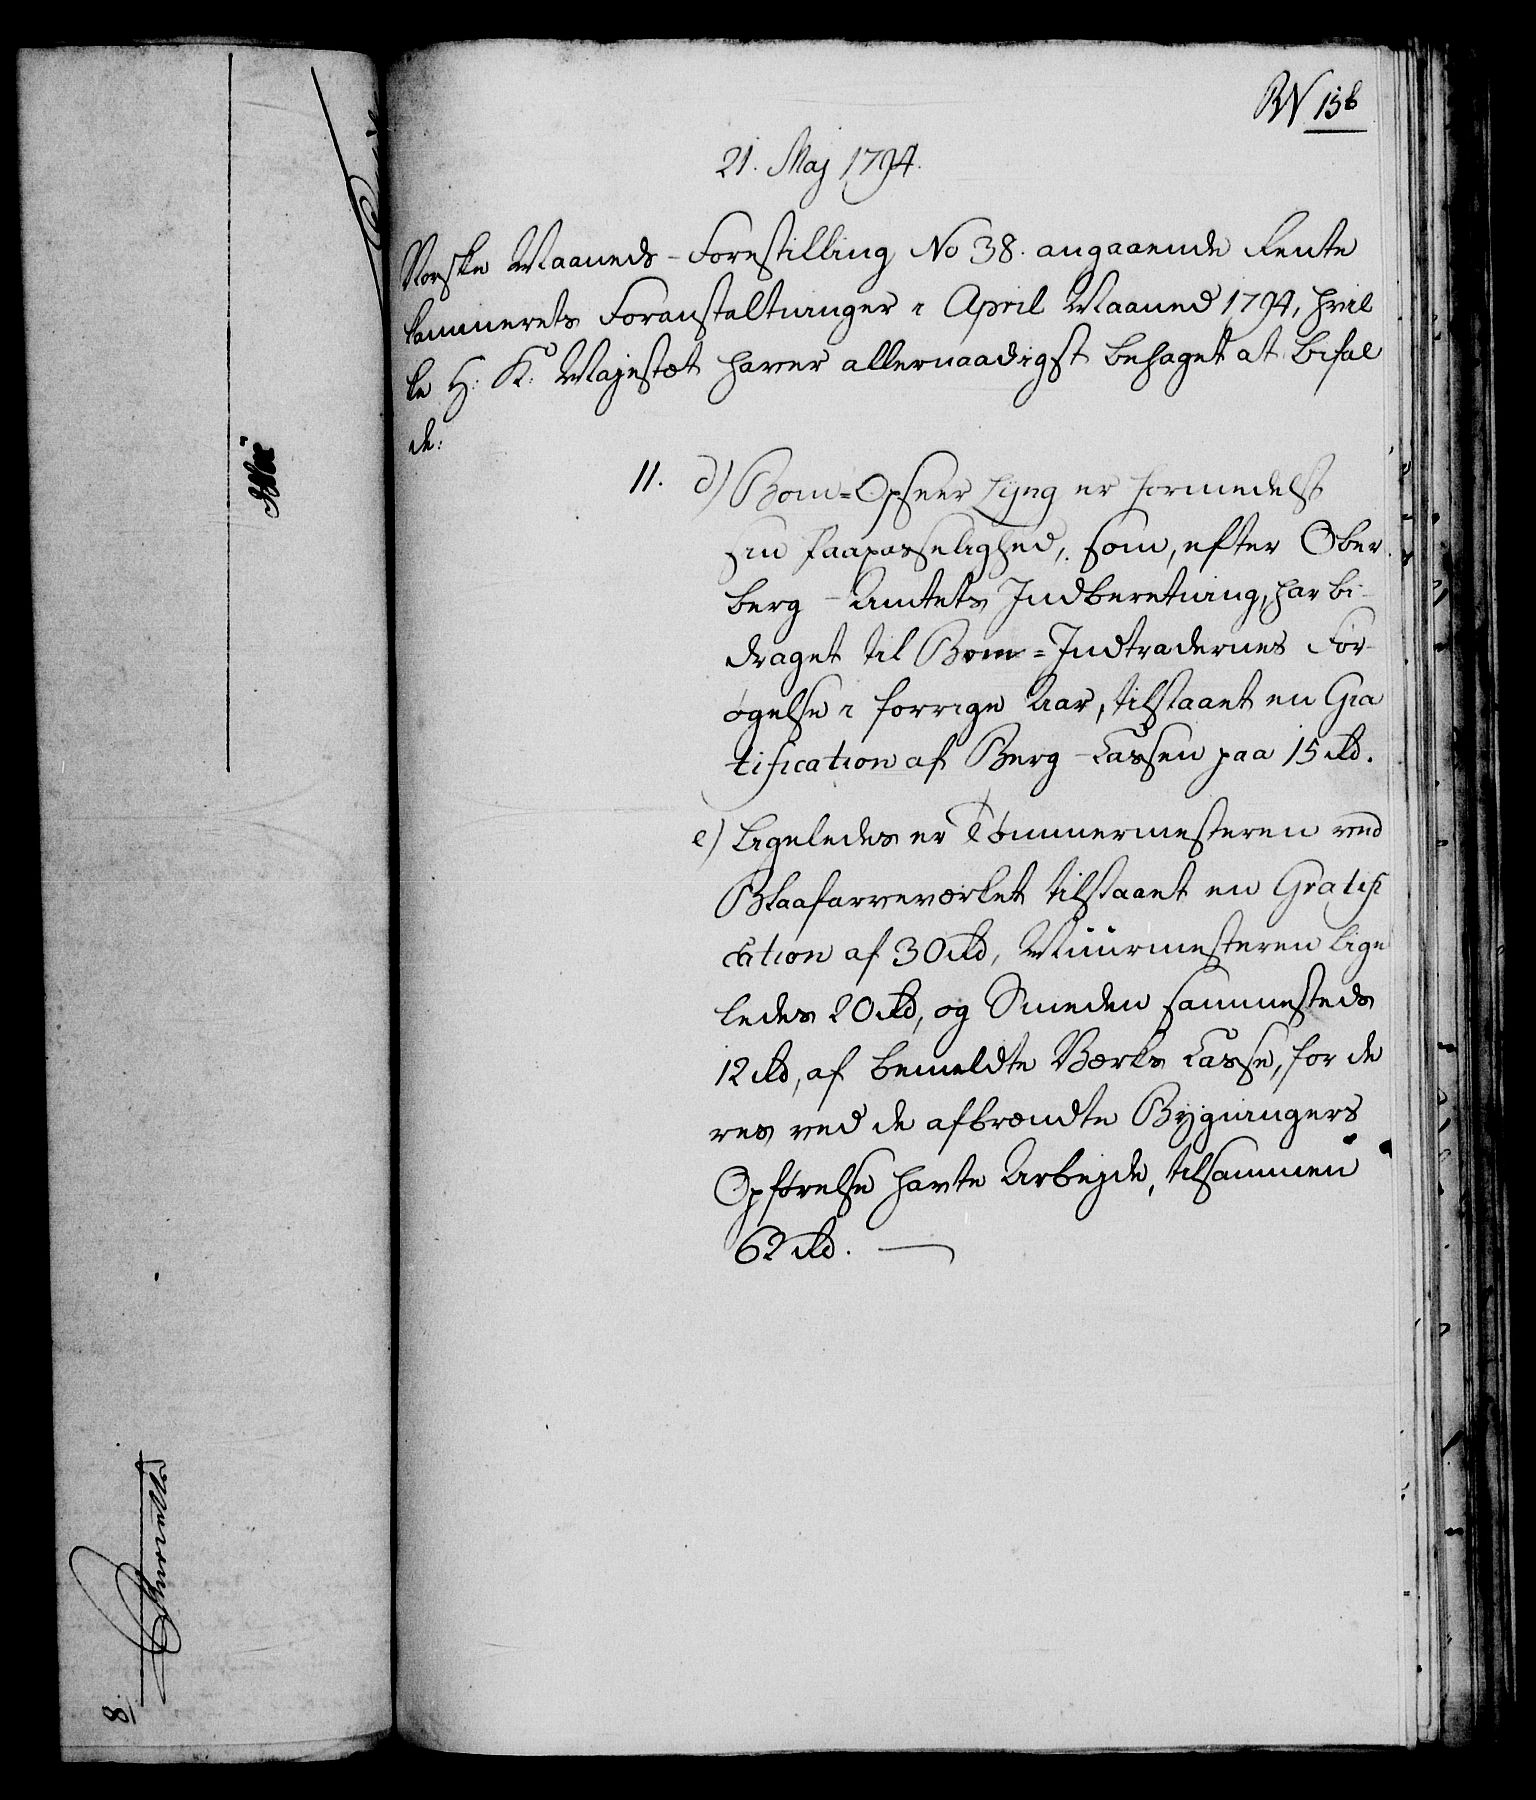 RN 158
21. Maj 1794.
Norske Maaneds-Forestilling No 38. angaaende Rente
kammerets Foranstaltninger i April Maaned 1794, hvil
ke H: K: Majestæt haver allernaadigst behaget at bifal
de:
11. d) Bom=Opseer Lyng er formedelst
sin Paapasselighed, som, efter Ober
berg-Amtets Indberetning, har bi-
draget til Bom=Indtradernes For-
øgelse i forrige Aar, tilstaaet en Gra
tification af Berg-Cassen paa 15 rd.
e) Ligeledes er Tømmermesteren ved
Blaafarveværket tilstaaet en Gratifi
cation af 30 rd, Muurmesteren lige
ledes 20 rd, og Smeden sammesteds
12 rd, af bemeldte Værks Casse, for de
res ved de afbrændte Bygningers
Opførelse havte Arbejde, tilsammen
62 rd.
8.